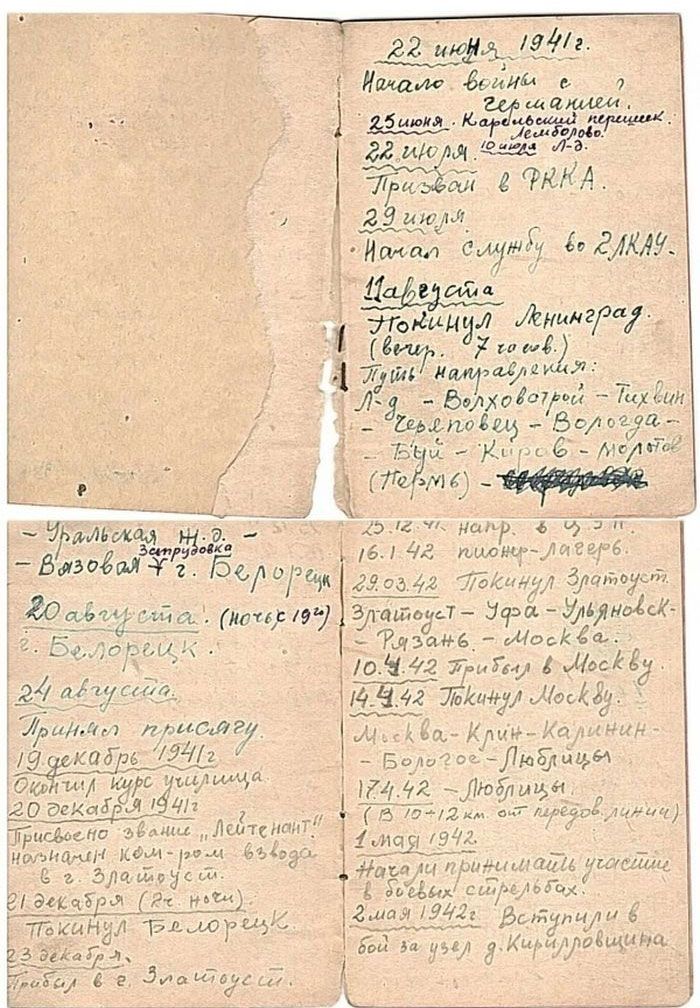 22 июня 1941 г.
Начало войны с
Германией.
25 июня. Карельский перешеек.
Лемболово.
22 июля. 10 июля Л-д.
Призван в РККА.
29 июля
Начал службу во 2ЛКАУ.
11 августа
Покинул Ленинград.
(вечер. 7 часов.)
Путь направления:
Л-д - Волховстрой - Тихвин
- Череповец - Вологда -
- Буй - Киров - Молотов
(Пермь) -
- Уральская ж.д. -
Запрудовка
- Вязовая г. Белорецк
20 августа. (ночь с 19го)
г. Белорецк.
24 августа.
Принял присягу.
19 декабрь 1941г
Окончил курс училища.
20 декабря 1941г
Присвоено звание „Лейтенант"
назначен ком-ром взвода
в г. Златоуст.
21 декабря (2ч. ночи).
Покинул Белорецк.
23 декабря.
Прибыл в г. Златоуст.
25.12.41. напр. в
16.1.42 пионер-лагерь.
29.03.42 Покинул Златоуст.
Златоуст - Уфа - Ульяновск-
- Рязань - Москва.
10.4.42 Прибыл в Москву.
14.4.42 Покинул Москву.
Москва - Клин - Калинин -
- Бологое - Люблицы
17.4.42 - Люблицы
(в 10÷12 км. от передов. линии)
1 мая 1942.
Начали принимать участие
в боевых стрельбах.
2 мая 1942г. Вступили в
бой за узел д. Кирилловщина